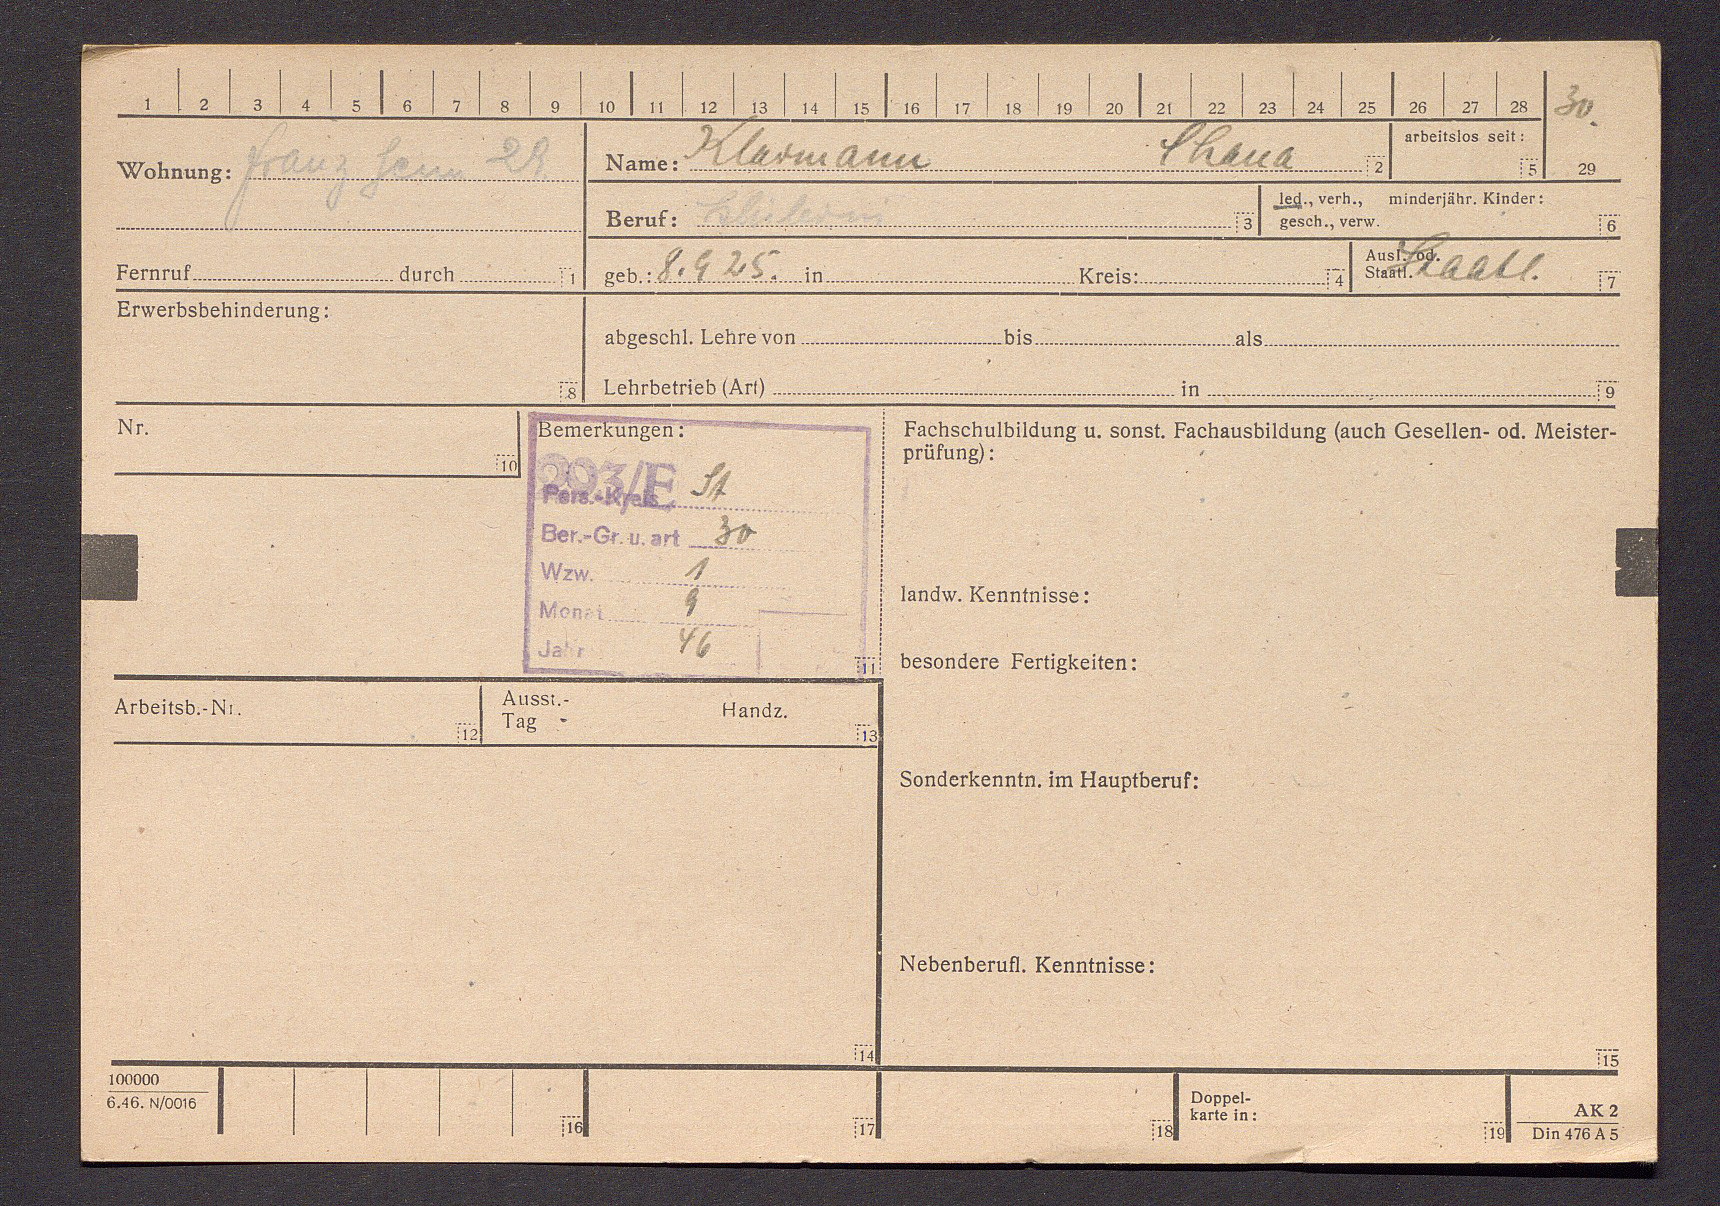 1 2 3 4 5 6 7 8 9 10 11 12 13 14 15 16 17 18 19 20 21 22 23 24 25 26 27 28 30.
29
Wohnung: Franz 28
Name: Klarmann Chana 2
arbeitslos seit: 5
Beruf: 3
led., verh., minderjähr. Kinder:
gesch., verw. 6
Fernruf durch 1
geb.: 8.9 25. in Kreis: 4
Ausl. od.
Staatl. Staatl. 7
Erwerbsbehinderung:
8
abgeschl. Lehre von bis als
Lehrbetrieb (Art) in 9
Nr.
10
Bemerkungen:
203/E
Pers.-Kreis St
Ber.-Gr. u. art 30
Wzw. 1
Monat 9
Jahr 46
11
Fachschulbildung u. sonst. Fachausbildung (auch Gesellen- od. Meister-
prüfung):
landw. Kenntnisse:
besondere Fertigkeiten:
Arbeitsb.-Nr. 12
Ausst.-
Tag Handz. 13
Sonderkenntn. im Hauptberuf:
Nebenberufl. Kenntnisse:
14
15
100000
6.46. N/0016
16
17
18
Doppel-
karte in:
19
AK 2
Din 476 A 5